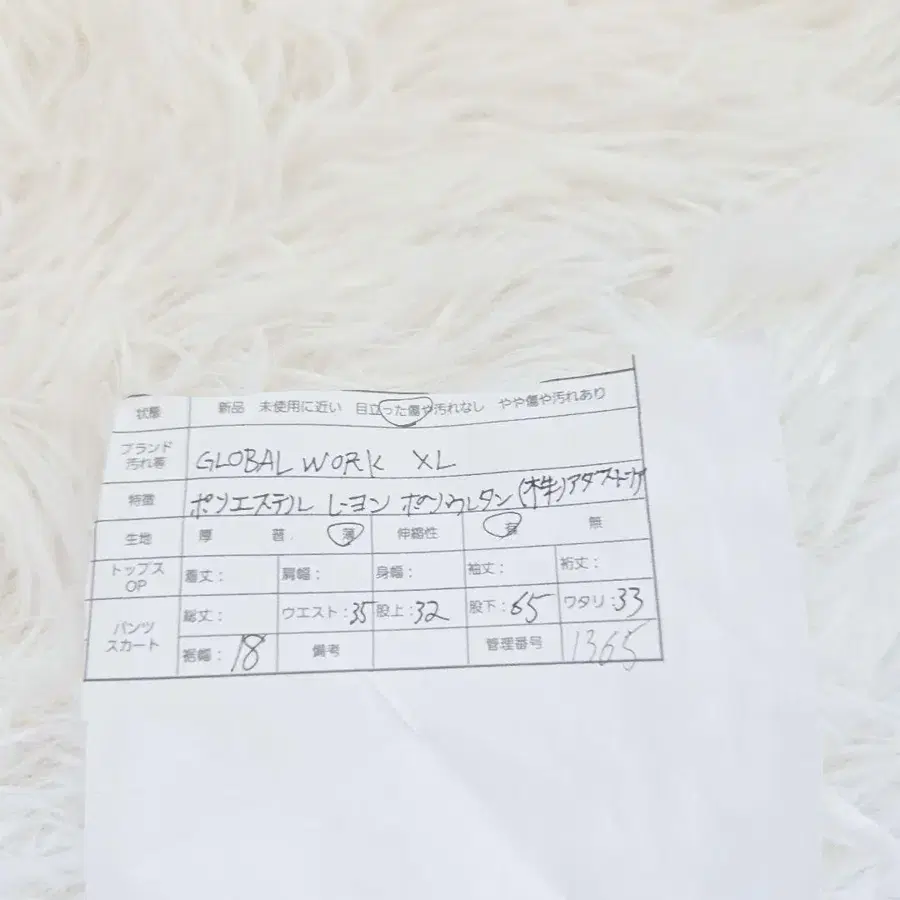 状態 新品 未使用に近い 目立った傷や汚れなし やや傷や汚れあり
ブランド
汚れ等 GLOBAL WORK XL
特徴 ポリエステル レーヨン ポリウレタン (株)アダストリア
生地 厚 普 薄 伸縮性 有 無
トップス
OP 着丈: 肩幅: 身幅: 袖丈: 裄丈:
パンツ
スカート 総丈: ウエスト:35 股上:32 股下:65 ワタリ:33
裾幅:18 備考 管理番号 1365